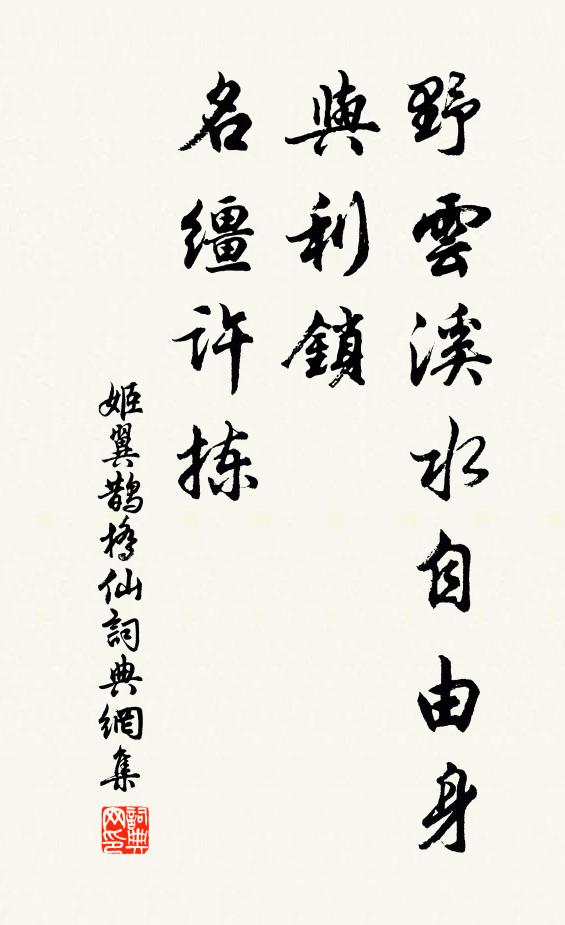 野雲溪水自由身
與利鎖
名缰許拣
姬翼鵲橋仙詞典網集
詞典网印